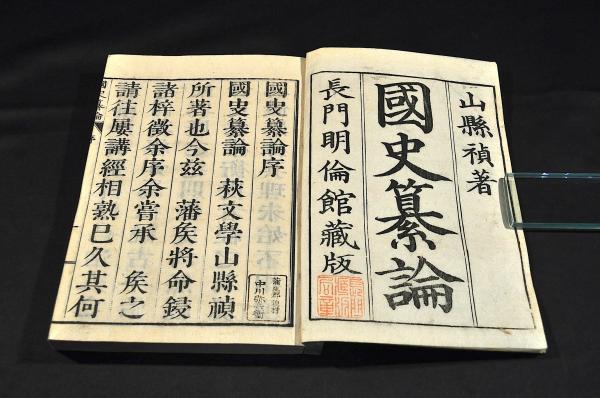 山縣禎著
國史纂論
長門明倫館藏版
國史纂論序
國史纂論萩文學山縣禎
所著也今茲 藩矦將命鋟
諸梓徵余序余嘗承 矦之
請往屢講經相熟已久其何